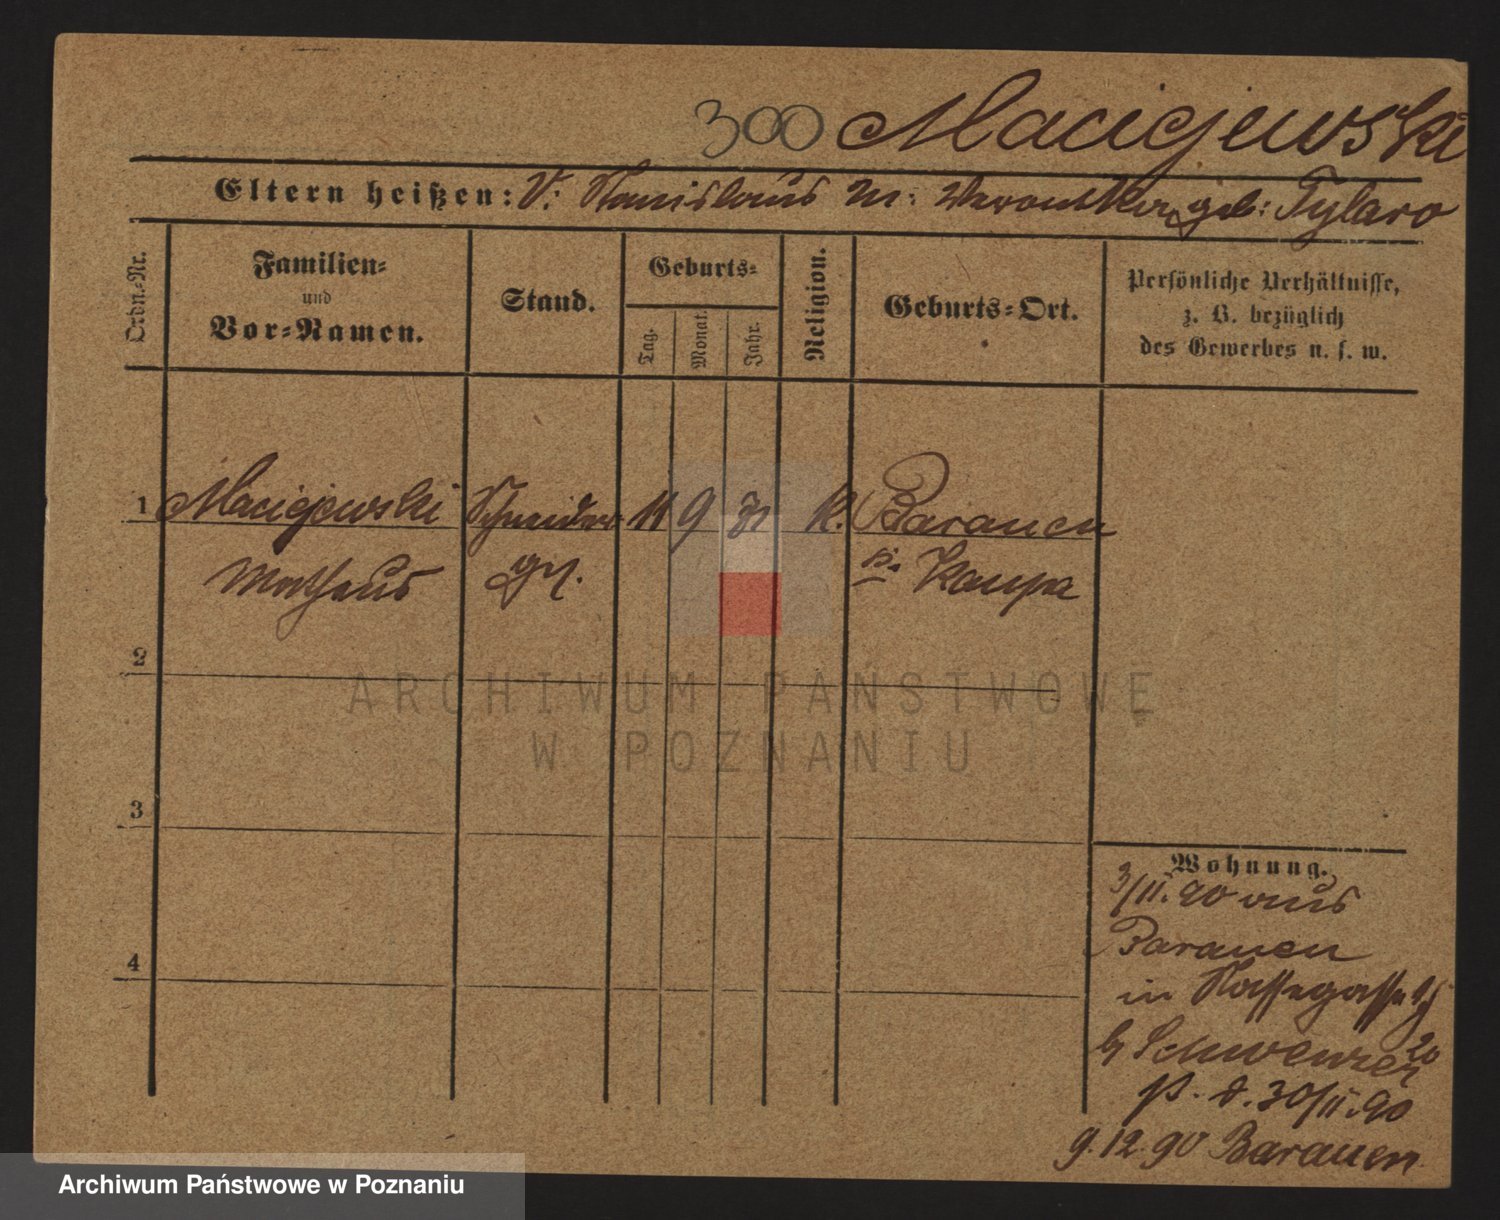 300 Maciejewski
Eltern heißen: V: Stanislaus M: Veronika geb: Tylaro
Ordn.-Nr.
Familien-
und
Vor-Namen.
Stand.
Geburts-
Tag.
Monat.
Jahr.
Religion.
Geburts-Ort.
Persönliche Verhältnisse,
z. B. bezüglich
des Gewerbes u. s. w.
1 Maciejewski Schneider 11 9 71 k. Baranen
Mathäus gs.
2
ARCHIWUM PAŃSTWOWE
W POZNANIU
3
Wohnung.
3/11.90 aus
Baranen
in
b/
p. d. 30/11.90
4
9.12.90 Baranen
Archiwum Państwowe w Poznaniu